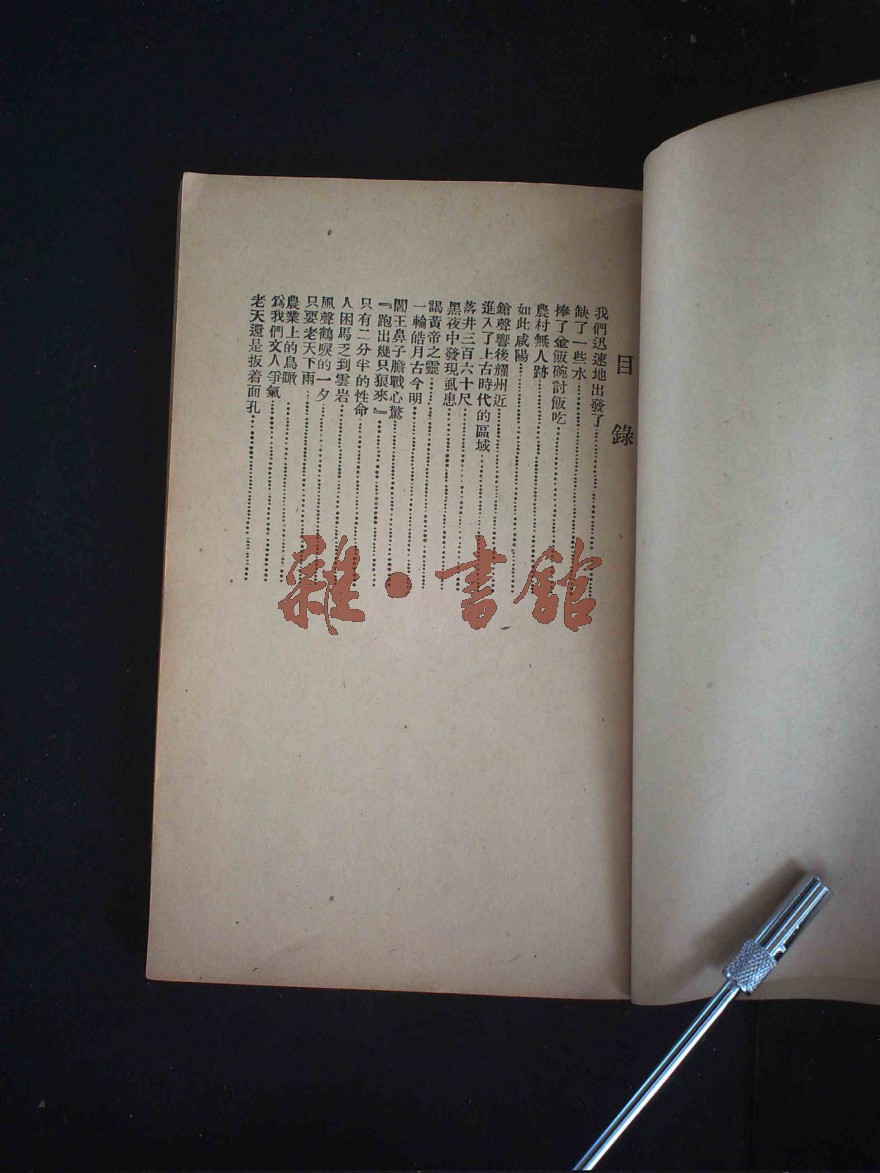 目錄
我們迅速地出發了
缺了一些水
捧了金飯碗討飯吃
農村無人跡
如此咸陽
鎗聲響後耀州近
進入了上古時代的區域
落井三百六十尺
黑夜中發現虱患
謁黃帝之靈
一輪皓月古今明
閻王鼻子膽戰心驚
『跑出幾只狼來』
只有二分半的性命
人困馬乏到雲岩
風聲鶴唳的一夕
只要老天下雨
農業上的鳥瞰
爲我們文人爭氣
老天還是扳着面孔
雜·書館